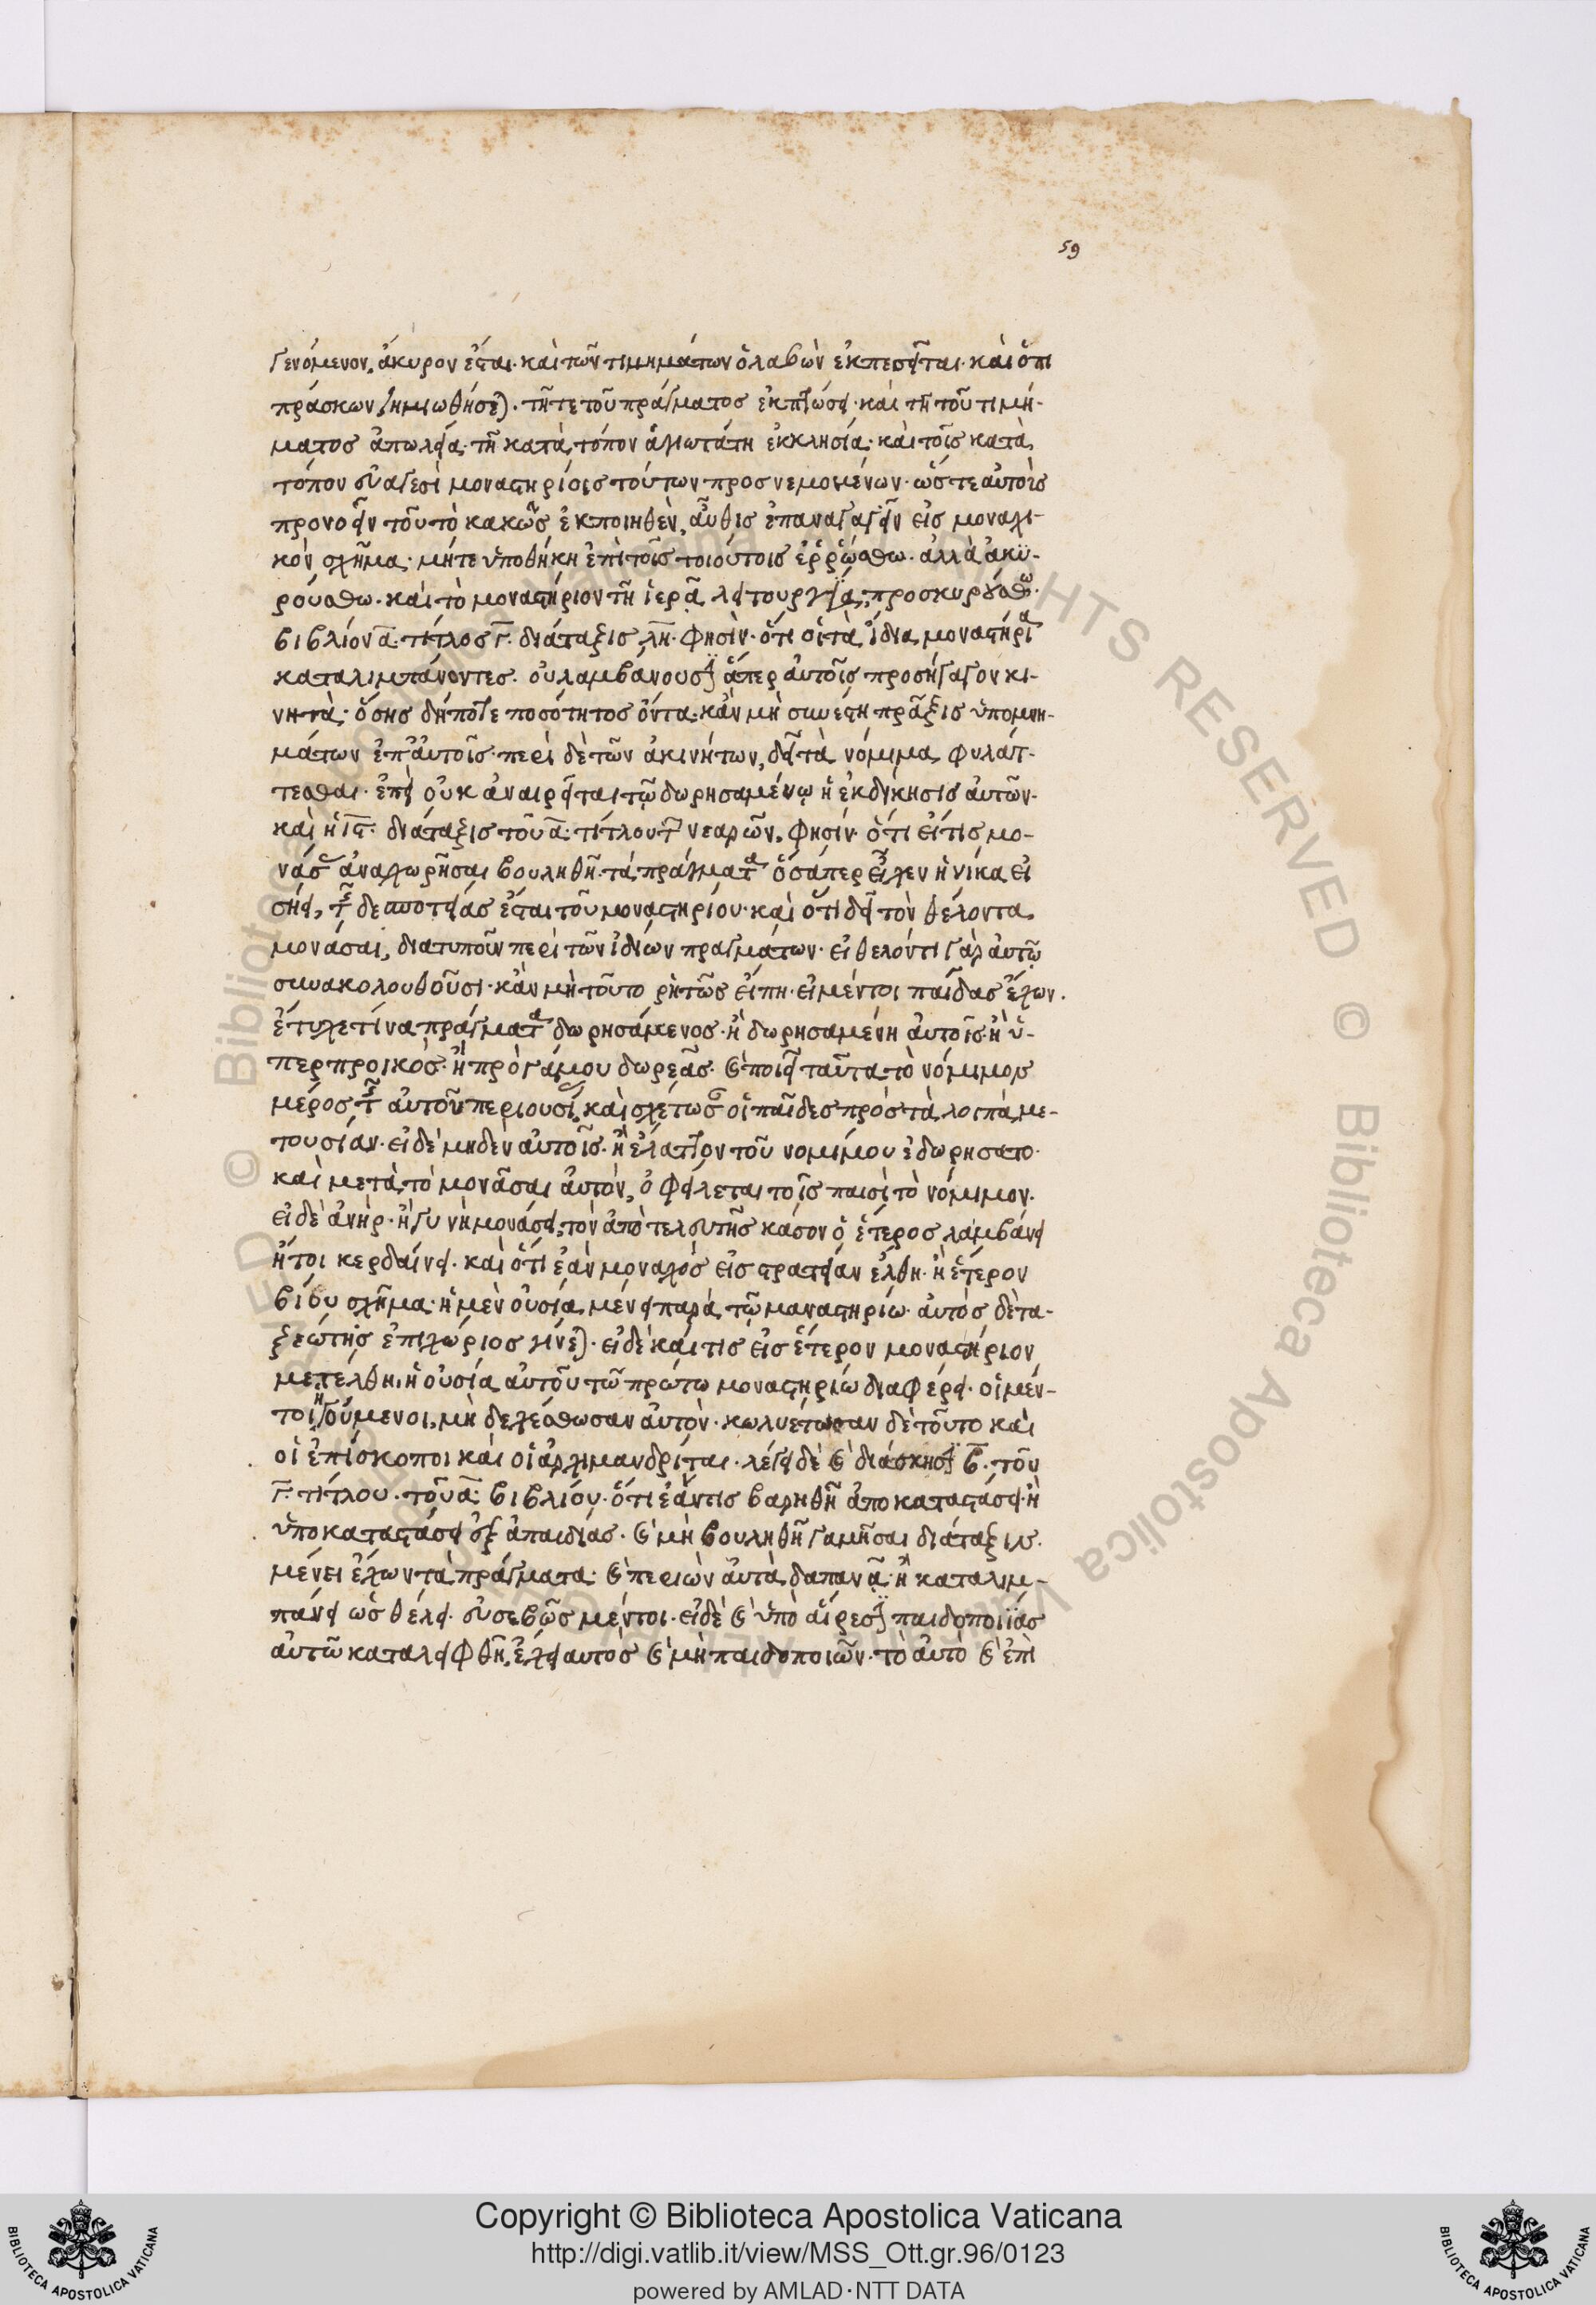 59
γενόμενον, ἄκυρον ἔσται· καὶ τῶν τιμημάτων ὁ λαβὼν ἐκπεσεῖται· καὶ ὅτι
πράσκων ζημιωθήσεται· τῆ τε τοῦ πράγματος ἐκπτώσει· καὶ τῆ τοῦ τιμή-
ματος ἀπωλεία· τῆ κατὰ τόπον ἁγιωτάτη ἐκκλησία· καὶ τοῖς κατὰ
τόπον εὐαγέσι μοναστηρίοις τούτων προσνεμομένων· ὥστε αὐτοὺς
προνοεῖν τοῦ τὸ κακῶς ἐκποιηθὲν, αὖθις ἐπαναγαγεῖν εἰς μοναχι-
κὸν σχῆμα· μήτε ὑποθήκη ἐπὶ τοῖς τοιούτοις ἐρρώσθω· ἀλλὰ ἀκυ-
ρούσθω· καὶ τὸ μοναστήριον τῆ ἱερᾶ λειτουργία προσκυρούσθω·
βιβλίον α· τίτλος γ· διάταξις λη· φησὶν· ὅτι οἱ τὰ ἴδια μοναστήρια
καταλιμπάνοντες· οὐ λαμβάνουσιν ἅπερ αὐτοῖς προσήγαγον κι-
νητὰ· ὅσης δήποτε ποσότητος ὄντα· κἂν μὴ συνέστη πρᾶξις ὑπομνη-
μάτων ἐπ' αὐτοῖς· περὶ δὲ τῶν ἀκινήτων, δεῖ τὰ νόμιμα φυλάτ-
τεσθαι· ἐπεὶ οὐκ ἀναιρεῖται τῷ δωρησαμένῳ ἡ ἐκδίκησις αὐτῶν·
καὶ ἡ ις· διάταξις τοῦ α· τίτλου τῶν νεαρῶν, φησίν· ὅτι εἴ τις μο-
νάσας ἀναχωρῆσαι βουληθῆ· τὰ πράγματα ὅσάπερ εἶχεν ἡνίκα εἰ
σήει, τῆς δεσποτείας ἔσται τοῦ μοναστηρίου· καὶ ὅτι δεῖ τὸν θέλοντα
μονάσαι, διατυποῦν περὶ τῶν ἰδίων πραγμάτων· εἰθελόντι γὰρ αὐτῷ
συνακολουθοῦσι· κἂν μὴ τοῦτο ῥητῶς εἴπη· εἰ μέντοι παῖδας ἔχων·
ἔτυχέ τινα πράγματα δωρησάμενος· ἢ δωρησαμένη αὐτοῖς· ἢ ὑ-
περ προικὸς· ἢ πρὸ γάμου δωρεᾶς· καὶ ποιεῖ ταῦτα τὸ νόμιμον
μέρος τῆς αὐτοῦ περιουσίας, καὶ σχέτωσαν οἱ παῖδες πρὸς τὰ λοιπὰ με-
τουσίαν· εἰ δὲ μηδὲν αὐτοῖς· ἢ ἔλαττον τοῦ νομίμου ἐδωρήσατο·
καὶ μετὰ τὸ μονᾶσαι αὐτὸν, ὀφείλεται τοῖς παισὶ τὸ νόμιμον·
εἰ δὲ ἀνὴρ· ἢ γυνὴ μονάσει, τὸν ἀπὸ τελευτῆς κάσον ὁ ἕτερος λαμβάνει
ἤτοι κερδαίνει· καὶ ὅτι ἐὰν μοναχὸς εἰς στρατείαν ἔλθη· ἢ ἕτερον
βίου σχῆμα· ἡ μὲν οὐσία μένει παρὰ τῷ μοναστηρίω· αὐτὸς δὲ τα-
ξεώτης ἐπιχώριος γίνεται· εἰ δὲ καί τις εἰς ἕτερον μοναστήριον
μετέλθη, ἡ οὐσία αὐτοῦ τῶ πρώτω μοναστηρίω διαφέρει· οἱ μέν-
τοι ἡγούμενοι, μὴ δεχέσθωσαν αὐτὸν· κωλυέτωσαν δὲ τοῦτο καὶ
οἱ ἐπίσκοποι καὶ οἱ ἀρχιμανδρίται· λέγει δὲ καὶ διάσκησιν β· τοῦ
γ· τίτλου· τοῦ α· βιβλίου· ὅτι ἐάν τις βαρηθῆ ἀποκαταστάσει· ἢ
ὑποκαταστάσει ἐξ ἀπαιδίας· καὶ μὴ βουληθῆ γαμῆσαι διάταξιν·
μένει ἔχων τὰ πράγματα· καὶ περιὼν αὐτὰ δαπανᾶ· ἢ καταλιμ-
πάνει ὡς θέλει· εὐσεβῶς μέντοι· εἰ δὲ καὶ ὑπὸ αἵρεσιν παιδοποιΐας
αὐτῶ καταλειφθῆ, ἔχει αὐτοὺς καὶ μὴ παιδοποιῶν· τὸ αὐτὸ καὶ ἐπὶ
© Biblioteca Apostolica Vaticana ALL RIGHTS RESERVED
Copyright © Biblioteca Apostolica Vaticana
http://digi.vatlib.it/view/MSS_Ott.gr.96/0123
powered by AMLAD·NTT DATA
BIBLIOTECA APOSTOLICA VATICANA
BIBLIOTECA APOSTOLICA VATICANA